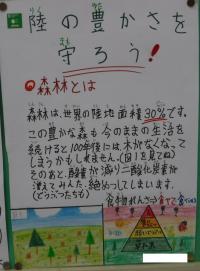 りく ゆた
陸の豊かさを
まも
守ろう!
しんりん
森林とは
森林は、世界の陸地面積30%です。
この豊かな森も今のままの生活を
続けると100年後には、木がなくなって
しまうかもしれません。(図1を見てね)
そのあと、酸素が減り二酸化炭素が
増えてみんな、絶めつしてしまいます。
(どうぶつたちも)
食物れんさ⇒食べる